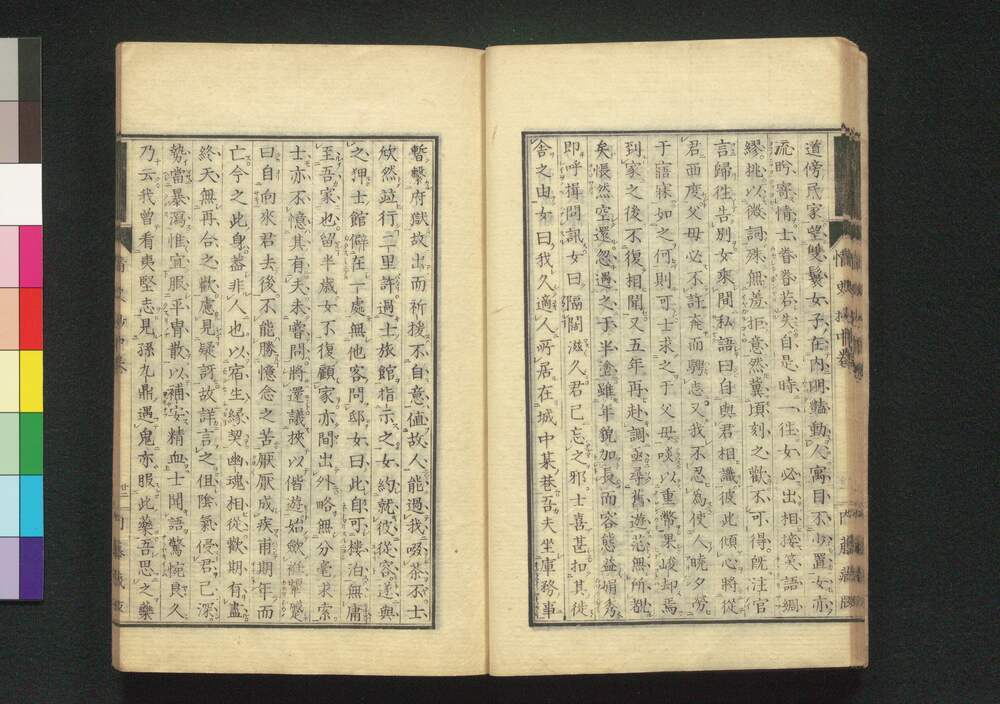 道傍民家望雙鬟女子在内明豔動人寓目不少置女亦
流眄寄情士眷眷若失自是時一往女必出相接笑語綢
繆挑以微詞殊無羞拒意然冀頃刻之歡不可得既注官
言歸往告別女乘間私語曰自與君相識彼此傾心將從
君西度父母必不許奔而騁志又我不忍為使人曉夕勞
于寤寐如之何則可士求之于父母啖以重幣果峻却焉
到家之後不復相聞又五年再赴調亟尋舊遊茫無所覩
矣悵然空還忽遇之于半塗雖年貌加長而容態益媚秀
即呼揖問訊女曰隔闊滋久君已忘之邪士喜甚扣其徙
舍之由女曰我久適人所居在城中某巷吾夫坐庫務事
暫繫府獄故出而祈援不自意値故人能過我啜茶不士
欣然竝行二里許過士旅館指示之女約就彼從容遂與
之狎士館僻在一處無他客問邸女曰此自可棲泊無庸
至吾家也留半歲女不復顧家亦間出外略無分毫求索
士亦不憶其有夫未嘗問將還議挾以偕逝始歛袵顰蹙
曰自向來君去後不能勝憶念之苦厭厭成疾甫期年而
亡今之此身蓋非人也以宿生緣契幽魂相從歡期有盡
終天無再合之歡慮見疑訝故詳言之但陰氣侵君已深
勢當暴瀉惟宜服平胃散以補安精血士聞語驚惋良久
乃云我曾看夷堅志見孫九鼎遇鬼亦服此藥吾思之藥